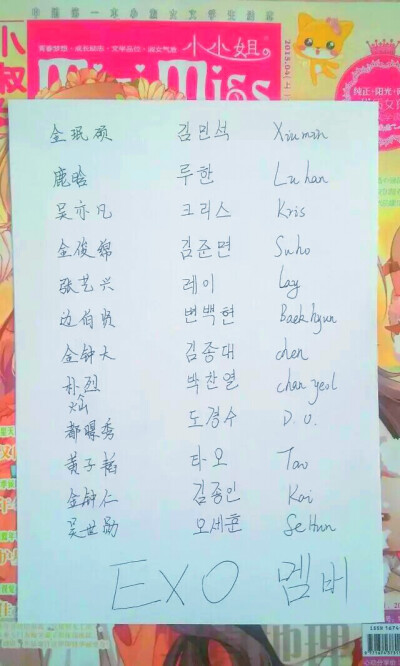 中国第一本小淑女文学生活志
青春梦想·成长励志·文学品位·淑女气质 小小姐
Mini Miss
2015.04(上)
小叔
纯正·阳光·
金珉硕 김민석 Xiumin
鹿晗 루한 Luhan
吴亦凡 크리스 Kris
金俊绵 김준면 Suho
张艺兴 레이 Lay
边伯贤 변백현 Baekhyun
金钟大 김종대 chen
朴灿烈 박찬열 chanyeol
都暻秀 도경수 D.O.
黄子韬 타오 Tao
金钟仁 김종인 Kai
吴世勋 오세훈 SeHun
EXO 멤버